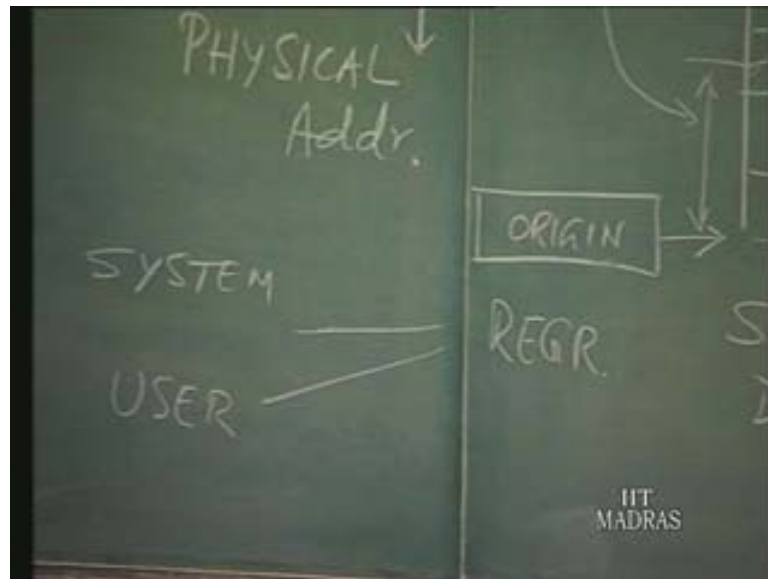 PHYSICAL
Addr.
ORIGIN
SYSTEM
REGR.
USER
IIT
MADRAS